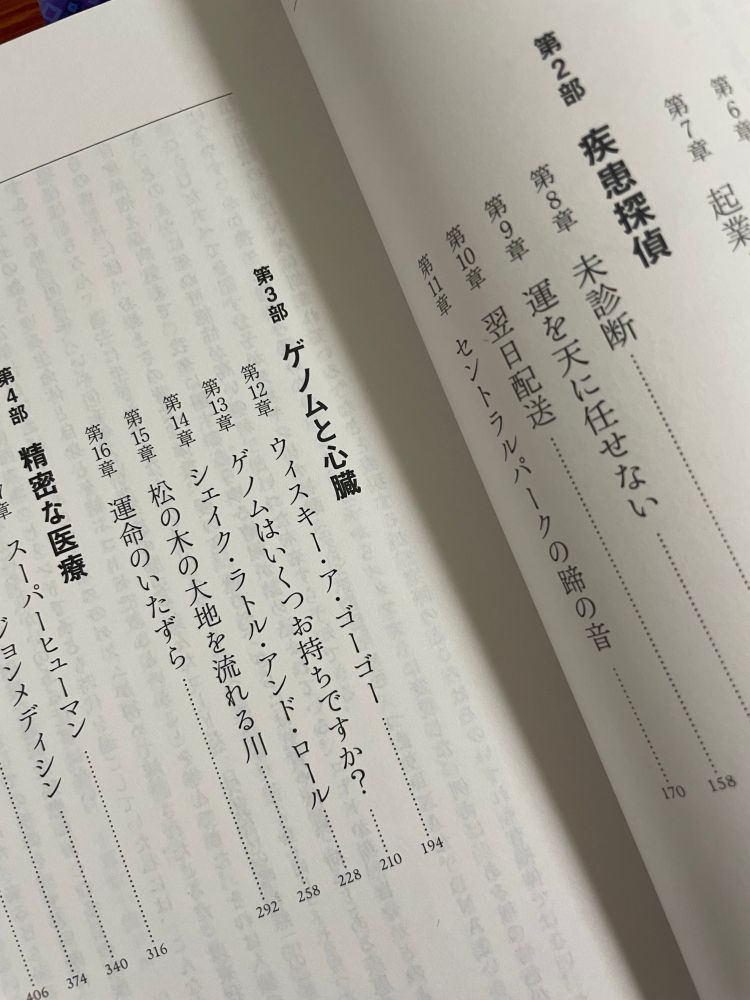 第6章
第7章 起業
第2部 疾患探偵
第8章 未診断
第9章 運を天に任せない
第10章 翌日配送 158
第11章 セントラルパークの蹄の音 170
第3部 ゲノムと心臓
第12章 ウィスキー・ア・ゴーゴー 194
第13章 ゲノムはいくつお持ちですか? 210
第14章 シェイク・ラトル・アンド・ロール 228
第15章 松の木の大地を流れる川 258
第16章 運命のいたずら 292
第4部 精密な医療
7章 スーパーヒューマン 316
ジョンメディシン 340
374
406